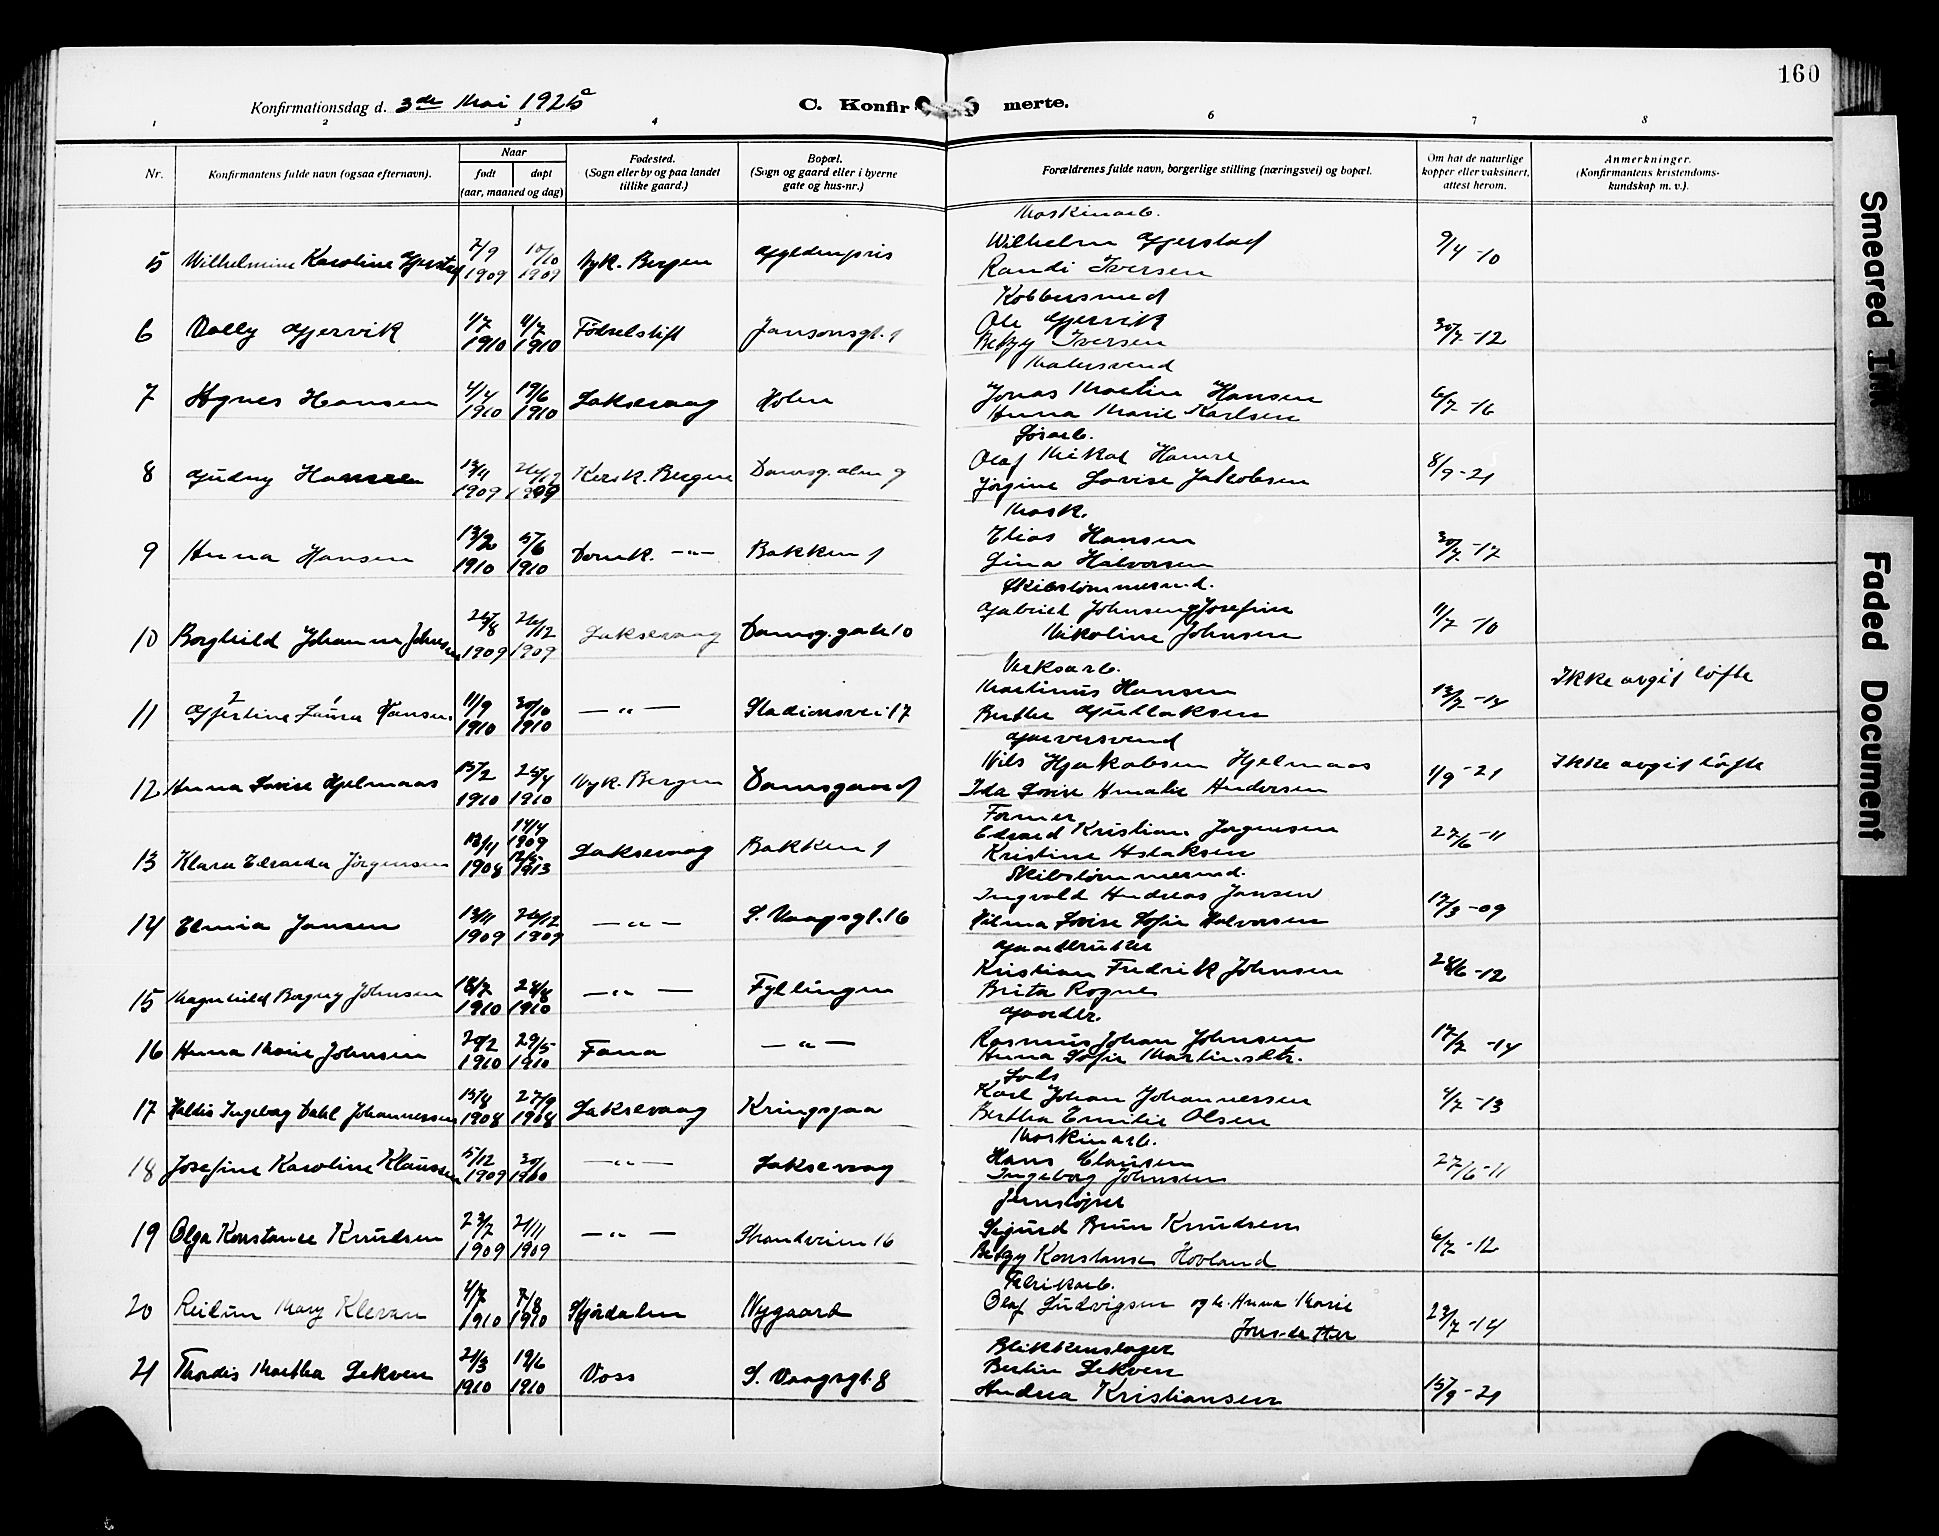 160
Konfirmationsdag d. 3de Mai 1925
C. Konfirmerte.
1 2 3 4 6 7 8
Nr.
Konfirmantens fulde navn (ogsaa efternavn).
Naar
født døpt
(aar, maaned og dag)
Fødested.
(Sogn eller by og paa landet
tillike gaard.)
Bopæl.
(Sogn og gaard eller i byerne
gate og hus-nr.)
Forældrenes fulde navn, borgerlige stilling (næringsvei) og bopæl.
Om hat de naturlige
kopper eller vaksinert,
attest herom.
Anmerkninger.
(Konfirmantens kristendoms-
kundskap m. v.).
Maskinarb.
5 Wilhelmine Karoline 2/9 1909 10/10 1909 Nyk. Bergen Gyldenpris Wilhelm Gjerstad 9/4 -10
Randi Iversen
Kobbersmed
6 Dolly Gjervik 1/7 1910 11/7 1910 Fødselstift Jansonsgt. 1 Ole Gjervik 30/7 -12
Betzy Iversen
Malersvend
7 Agnes Hansen 4/4 1910 19/6 1910 Laksevaag Holen Jonas Martin Hansen 6/7 -16
Anna Marie Karlsen
Løsarb.
8 Gudny Hansen 13/11 1909 26/12 1909 Korsk. Bergen Damsg. alm 9 Olaf Mikal Hansen 8/9 -21
Jørgine Lovise Jakobsen
Mask.
9 Anna Hansen 13/2 1910 5/6 1910 Domk. —"— Bakken 1 Elias Hansen 30/7 -17
Gina Halvorsen
Skibstømmermd.
10 Borghild Johanna Johnsen 25/8 1909 26/12 1909 Laksevaag Damsg. gate 10 Gabriel Johnsen og Josefine 11/7 -10
Nikoline Johnsen
Verksarb.
11 Gjertine Laura Hansen 11/9 1910 30/10 1910 —"— Stadionsvei 17 Martinus Hansen 13/7 -14 Ikke avgit løfte
Berthe Gullaksen
Garversvend
12 Anna Lovise Hjelmaas 15/2 1910 25/4 1910 Nyk. Bergen Damsgaard Nils Hjakobsen Hjelmaas 1/9 -21 Ikke avgit løfte
Ida Lovise Amalie Andersen
Former
13 Klara Edvarda Jørgensen 18/11 1908 14/4 1909 12/5 1913 Laksevaag Bakken 1 Edvard Kristian Jørgensen 27/6 -11
Kristine Aslaksen
Skibstømmermd.
14 Elmira Jansen 13/11 1909 26/12 1909 —"— S. Vaagsgt. 16 Ingvald Andreas Jansen 17/3 -09
Hilma Lovise Sofie Halvorsen
Gaardbruker
15 Magnhild Borgny Johnsen 18/7 1910 28/8 1910 —"— Fyllingen Kristian Fredrik Johnsen 28/6 -12
Brita Rogne
Gaardbr.
16 Anna Marie Johnsen 20/2 1910 29/5 1910 Fana —"— Rasmus Johan Johnsen 17/7 -14
Anna Sofie Martinsdtr.
Lods
17 Haldis Ingeborg Dahl Johannessen 15/8 1908 27/9 1908 Laksevaag Kringsjaa Karl Johan Johannessen 4/7 -13
Bertha Emilie Olsen
Maskinarb.
18 Josefine Karoline Klaussen 15/12 1909 1910 —"— Laksevaag Hans Clausen 27/6 -11
Ingeborg Johnsen
Jernstøper
19 Olga Konstanse Knudsen 23/7 1909 21/11 1909 —"— Strandveien 16 Sigurd Brun Knudsen 6/7 -12
Betzy Konstanse Hovland
Fabrikarb.
20 Reidun Mary Klevan 4/7 1910 7/8 1910 Stjørdalen Nygaard Olaf Ludvigsen og h. Anna Marie 23/7 -14
Jonsdatter
Blikkenslager
21 Thordis Martha Lekven 21/3 1910 19/6 1910 Voss S. Vaagsgt. 8 Bertin Lekven 15/9 -21
Andrea Kristiansen
Smeared Ink
Faded Document